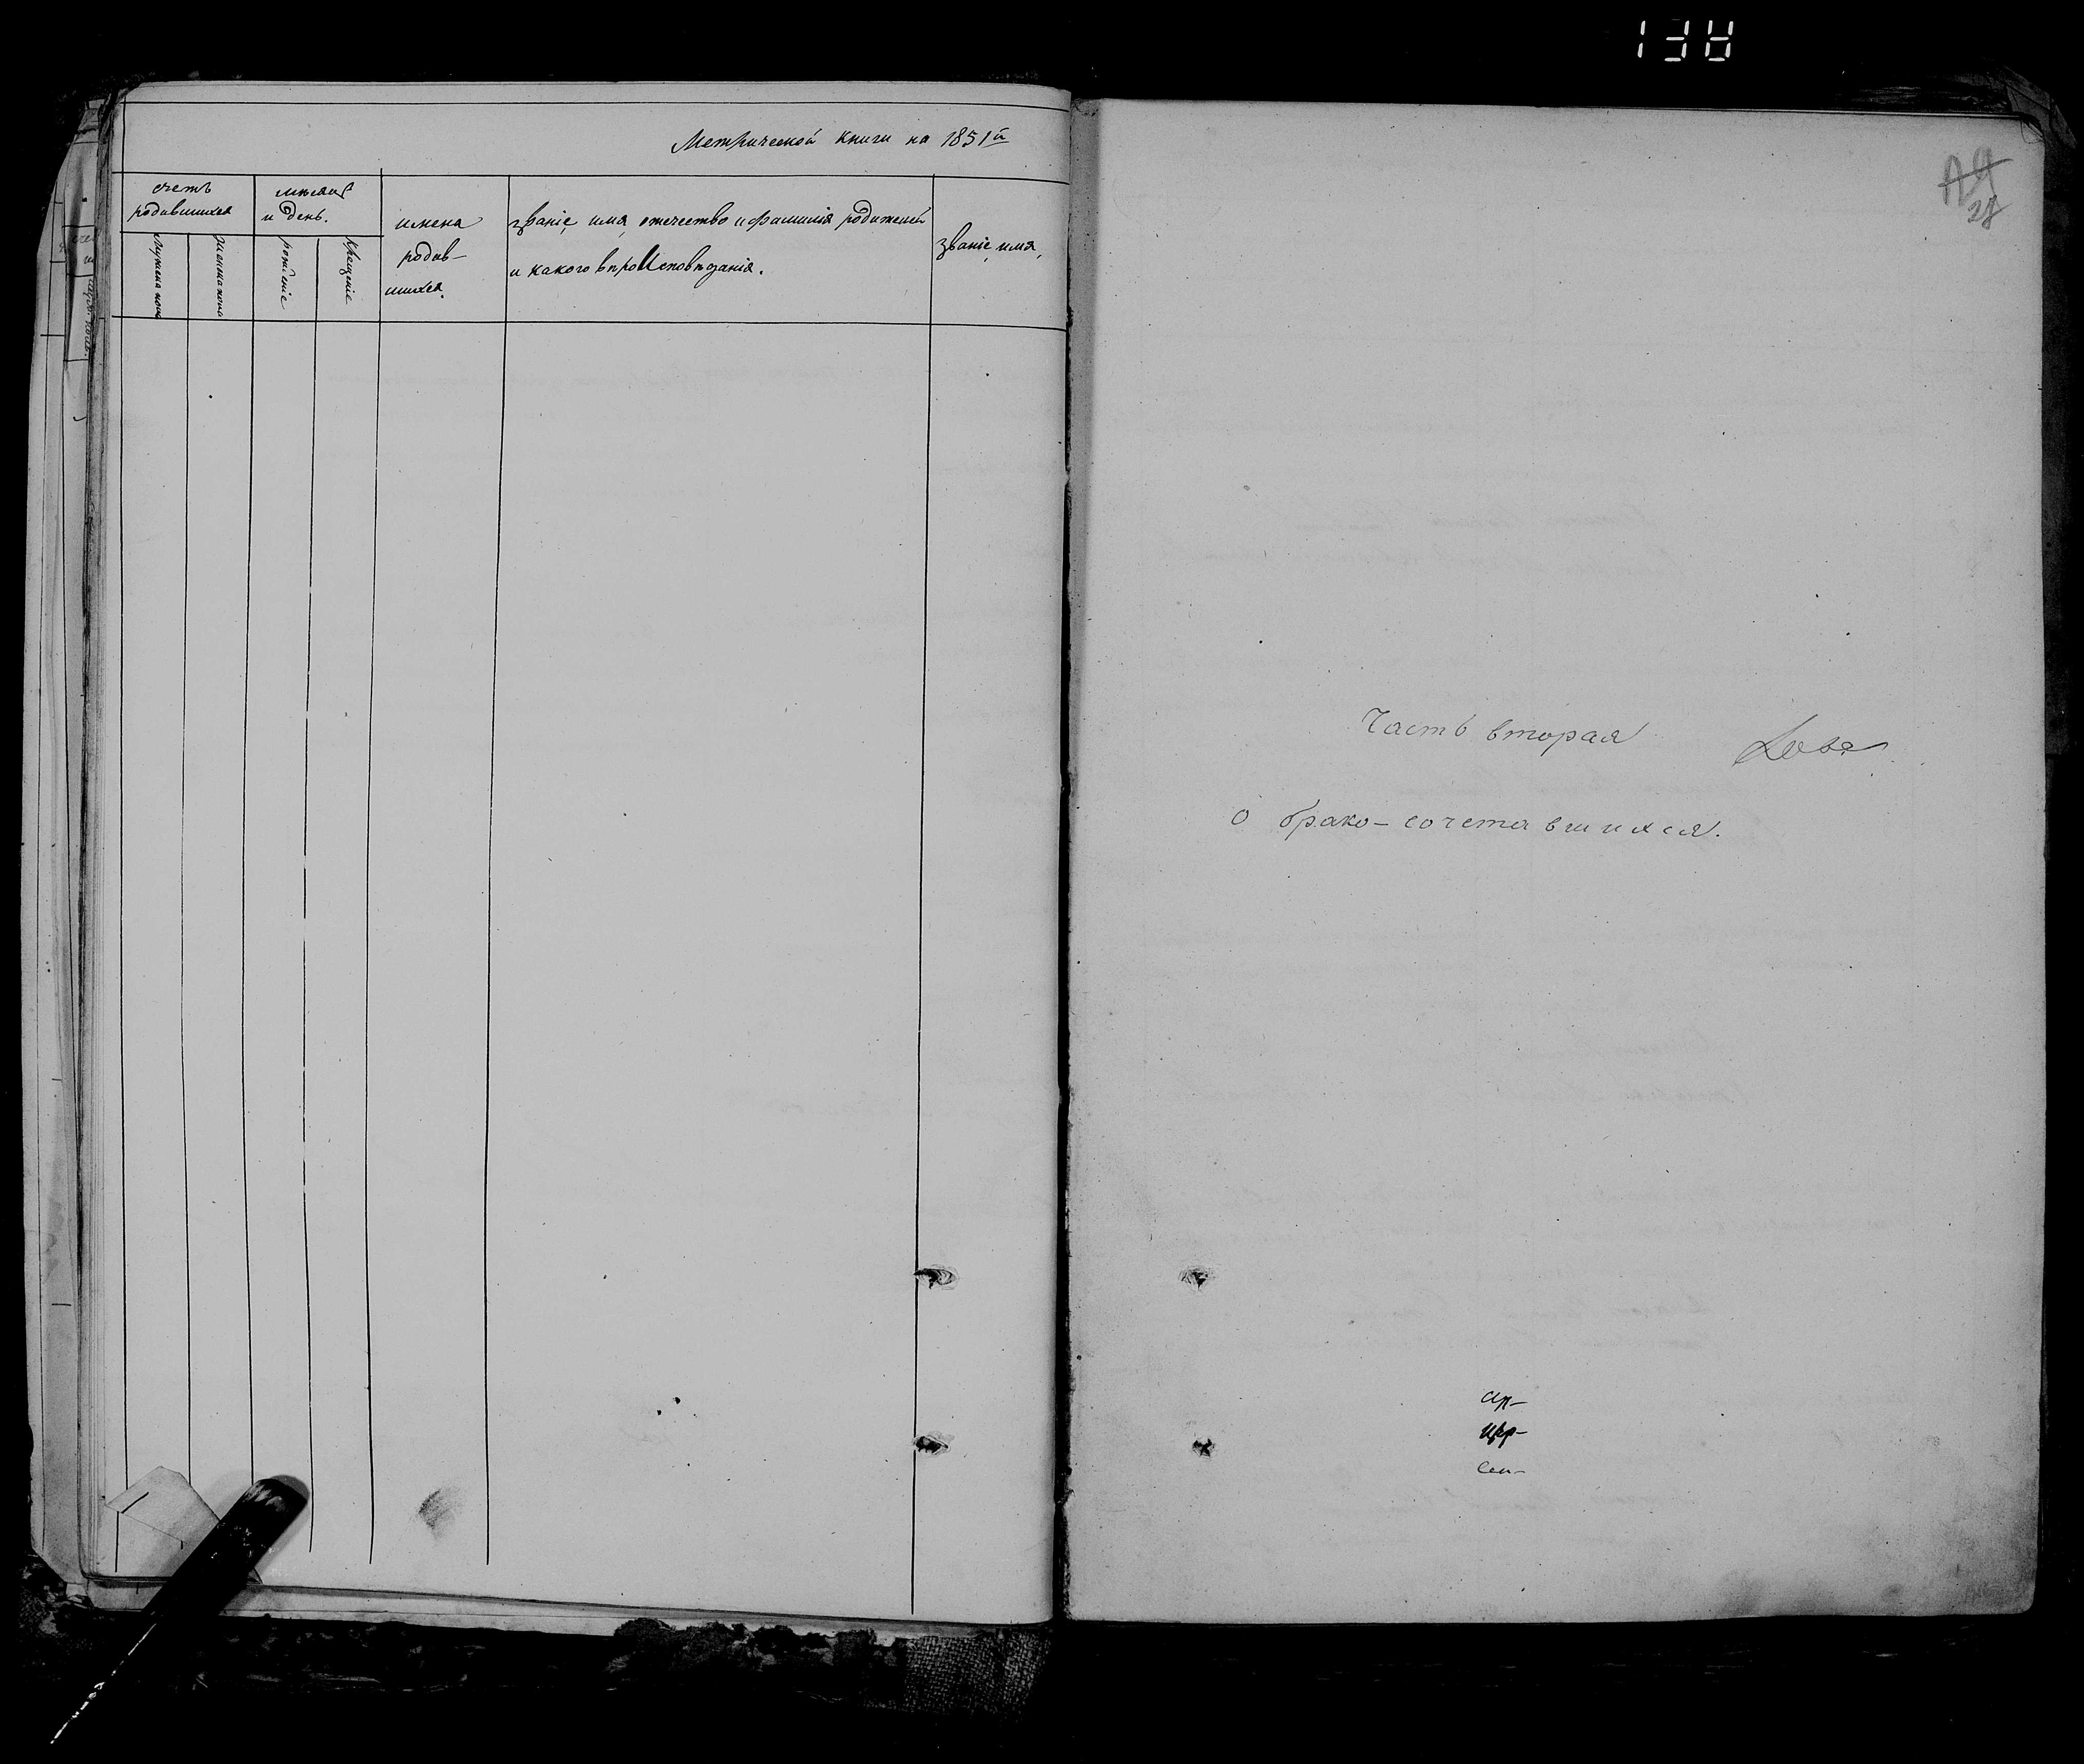 138
Метрической книги на 1851й
счетъ
родившихся
мѣсяцъ
и день.
имена
родив-
шихся.
званіе, имя, отечество и фамилія родителей
и какого вѣроИсповѣданія.
званіе, имя,
мужеска пола
женска пола
рожденіе
крещеніе
28
Часть вторая
о брако-сочетавшихся.
цер-